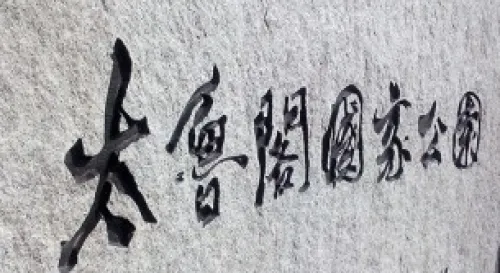 太魯閣國家公園